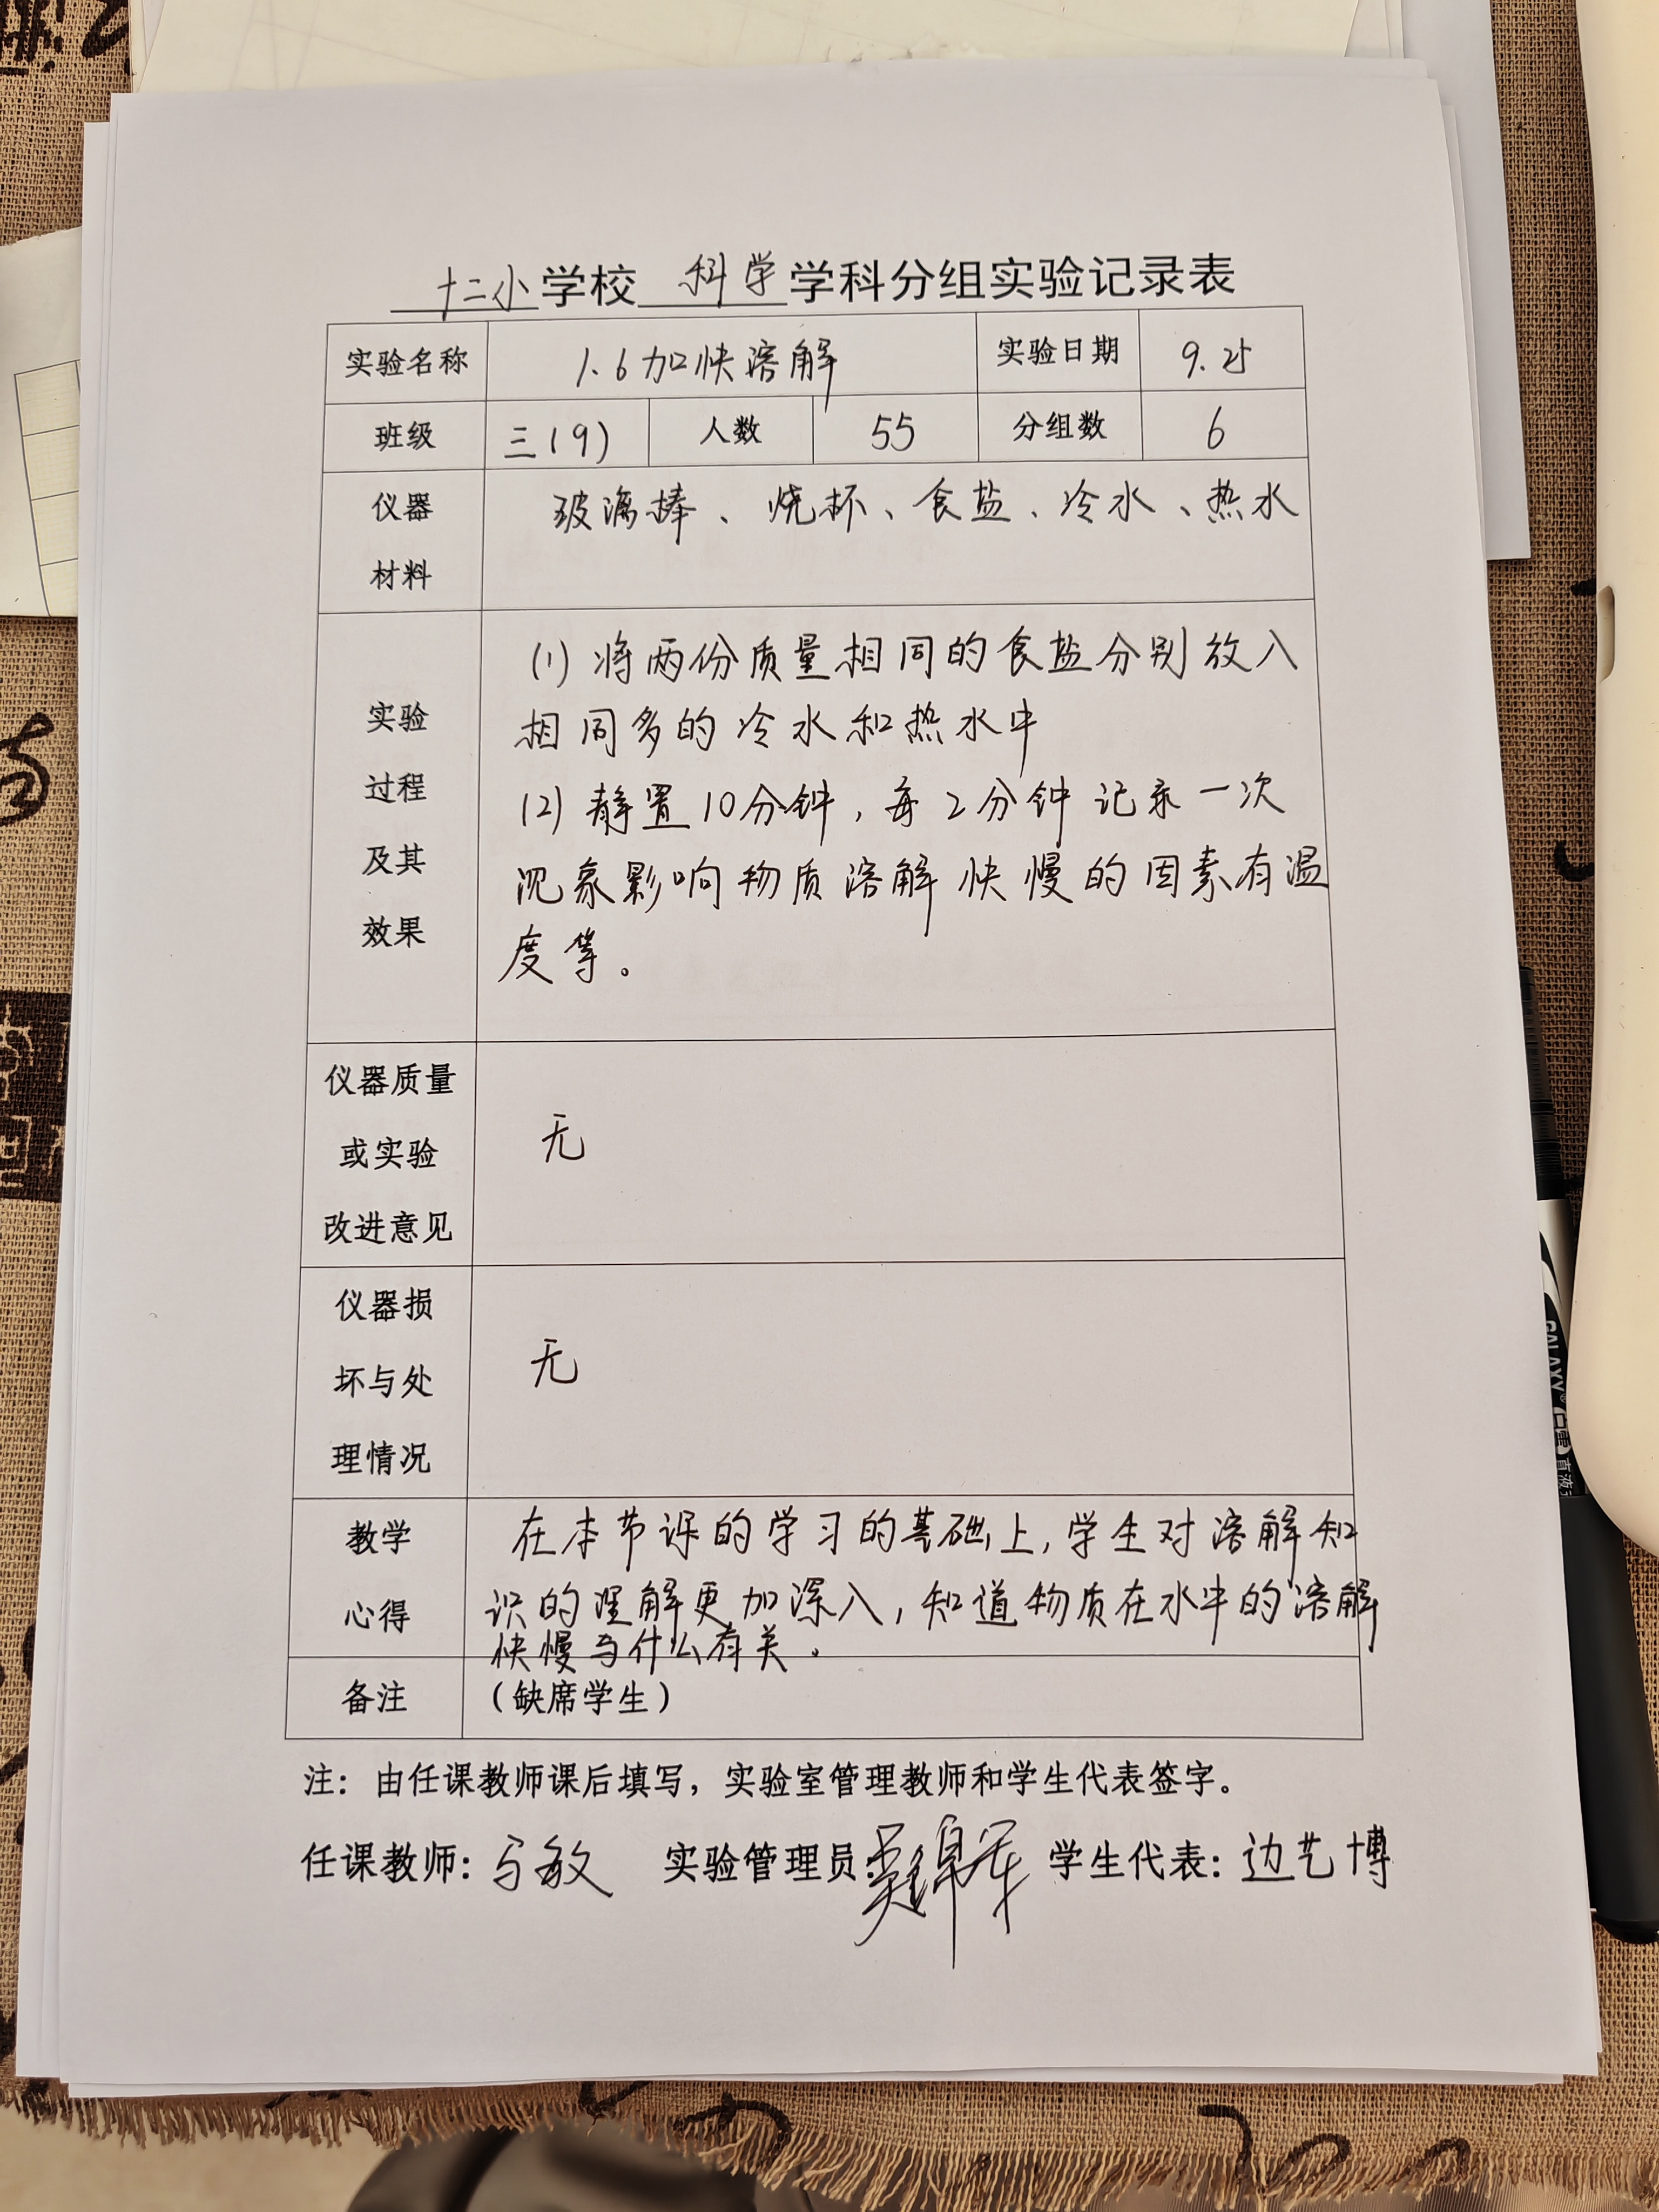 十二小学校 科学学科分组实验记录表
实验名称 1.6加快溶解 实验日期 9.25
班级 三(9) 人数 55 分组数 6
仪器
材料
玻璃棒、烧杯、食盐、冷水、热水
实验
过程
及其
效果
(1) 将两份质量相同的食盐分别放入
相同多的冷水和热水中
(2) 静置10分钟,每2分钟记录一次
现象影响物质溶解快慢的因素有温
度等。
仪器质量
或实验
改进意见
无
仪器损
坏与处
理情况
无
教学
心得
在本节课的学习的基础上,学生对溶解知
识的理解更加深入,知道物质在水中的溶解
快慢与什么有关。
备注 (缺席学生)
注:由任课教师课后填写,实验室管理教师和学生代表签字。
任课教师: 马敏 实验管理员: 学生代表: 边艺博